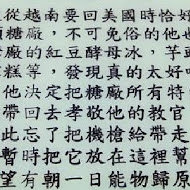 從越南要回美國時恰好
糖廠，不可免俗的他也
廠的紅豆酵母冰，芋
糕等，發現真的太好
他決定把糖廠所有特
帶回去孝敬他的教官
此忘了把機槍給帶走
暫時把它放在這裡幫
望有朝一日能物歸原